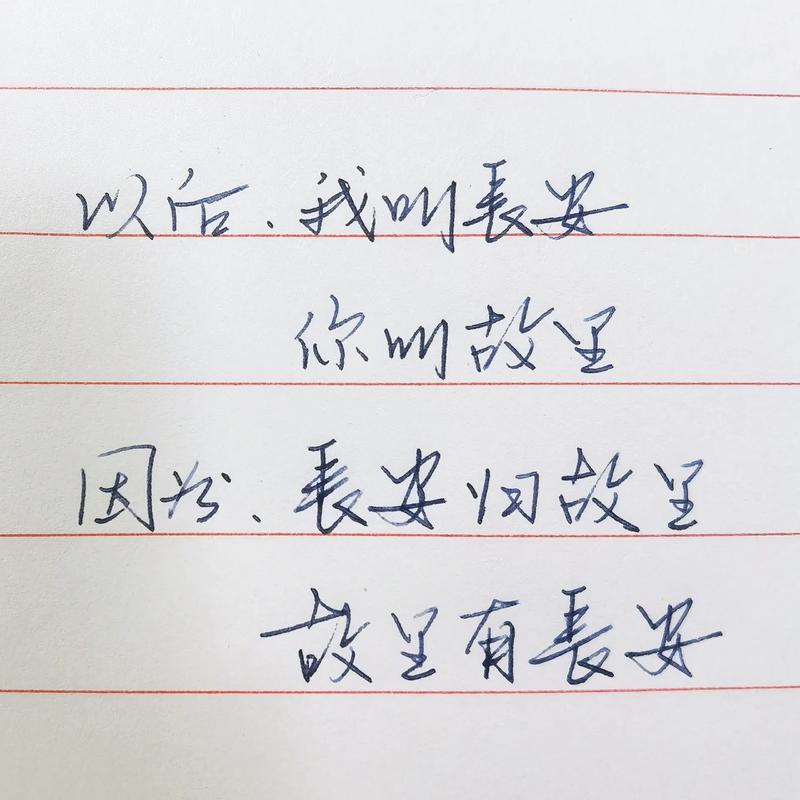 以后.我叫長安
你叫故里
因为.長安归故里
故里有長安